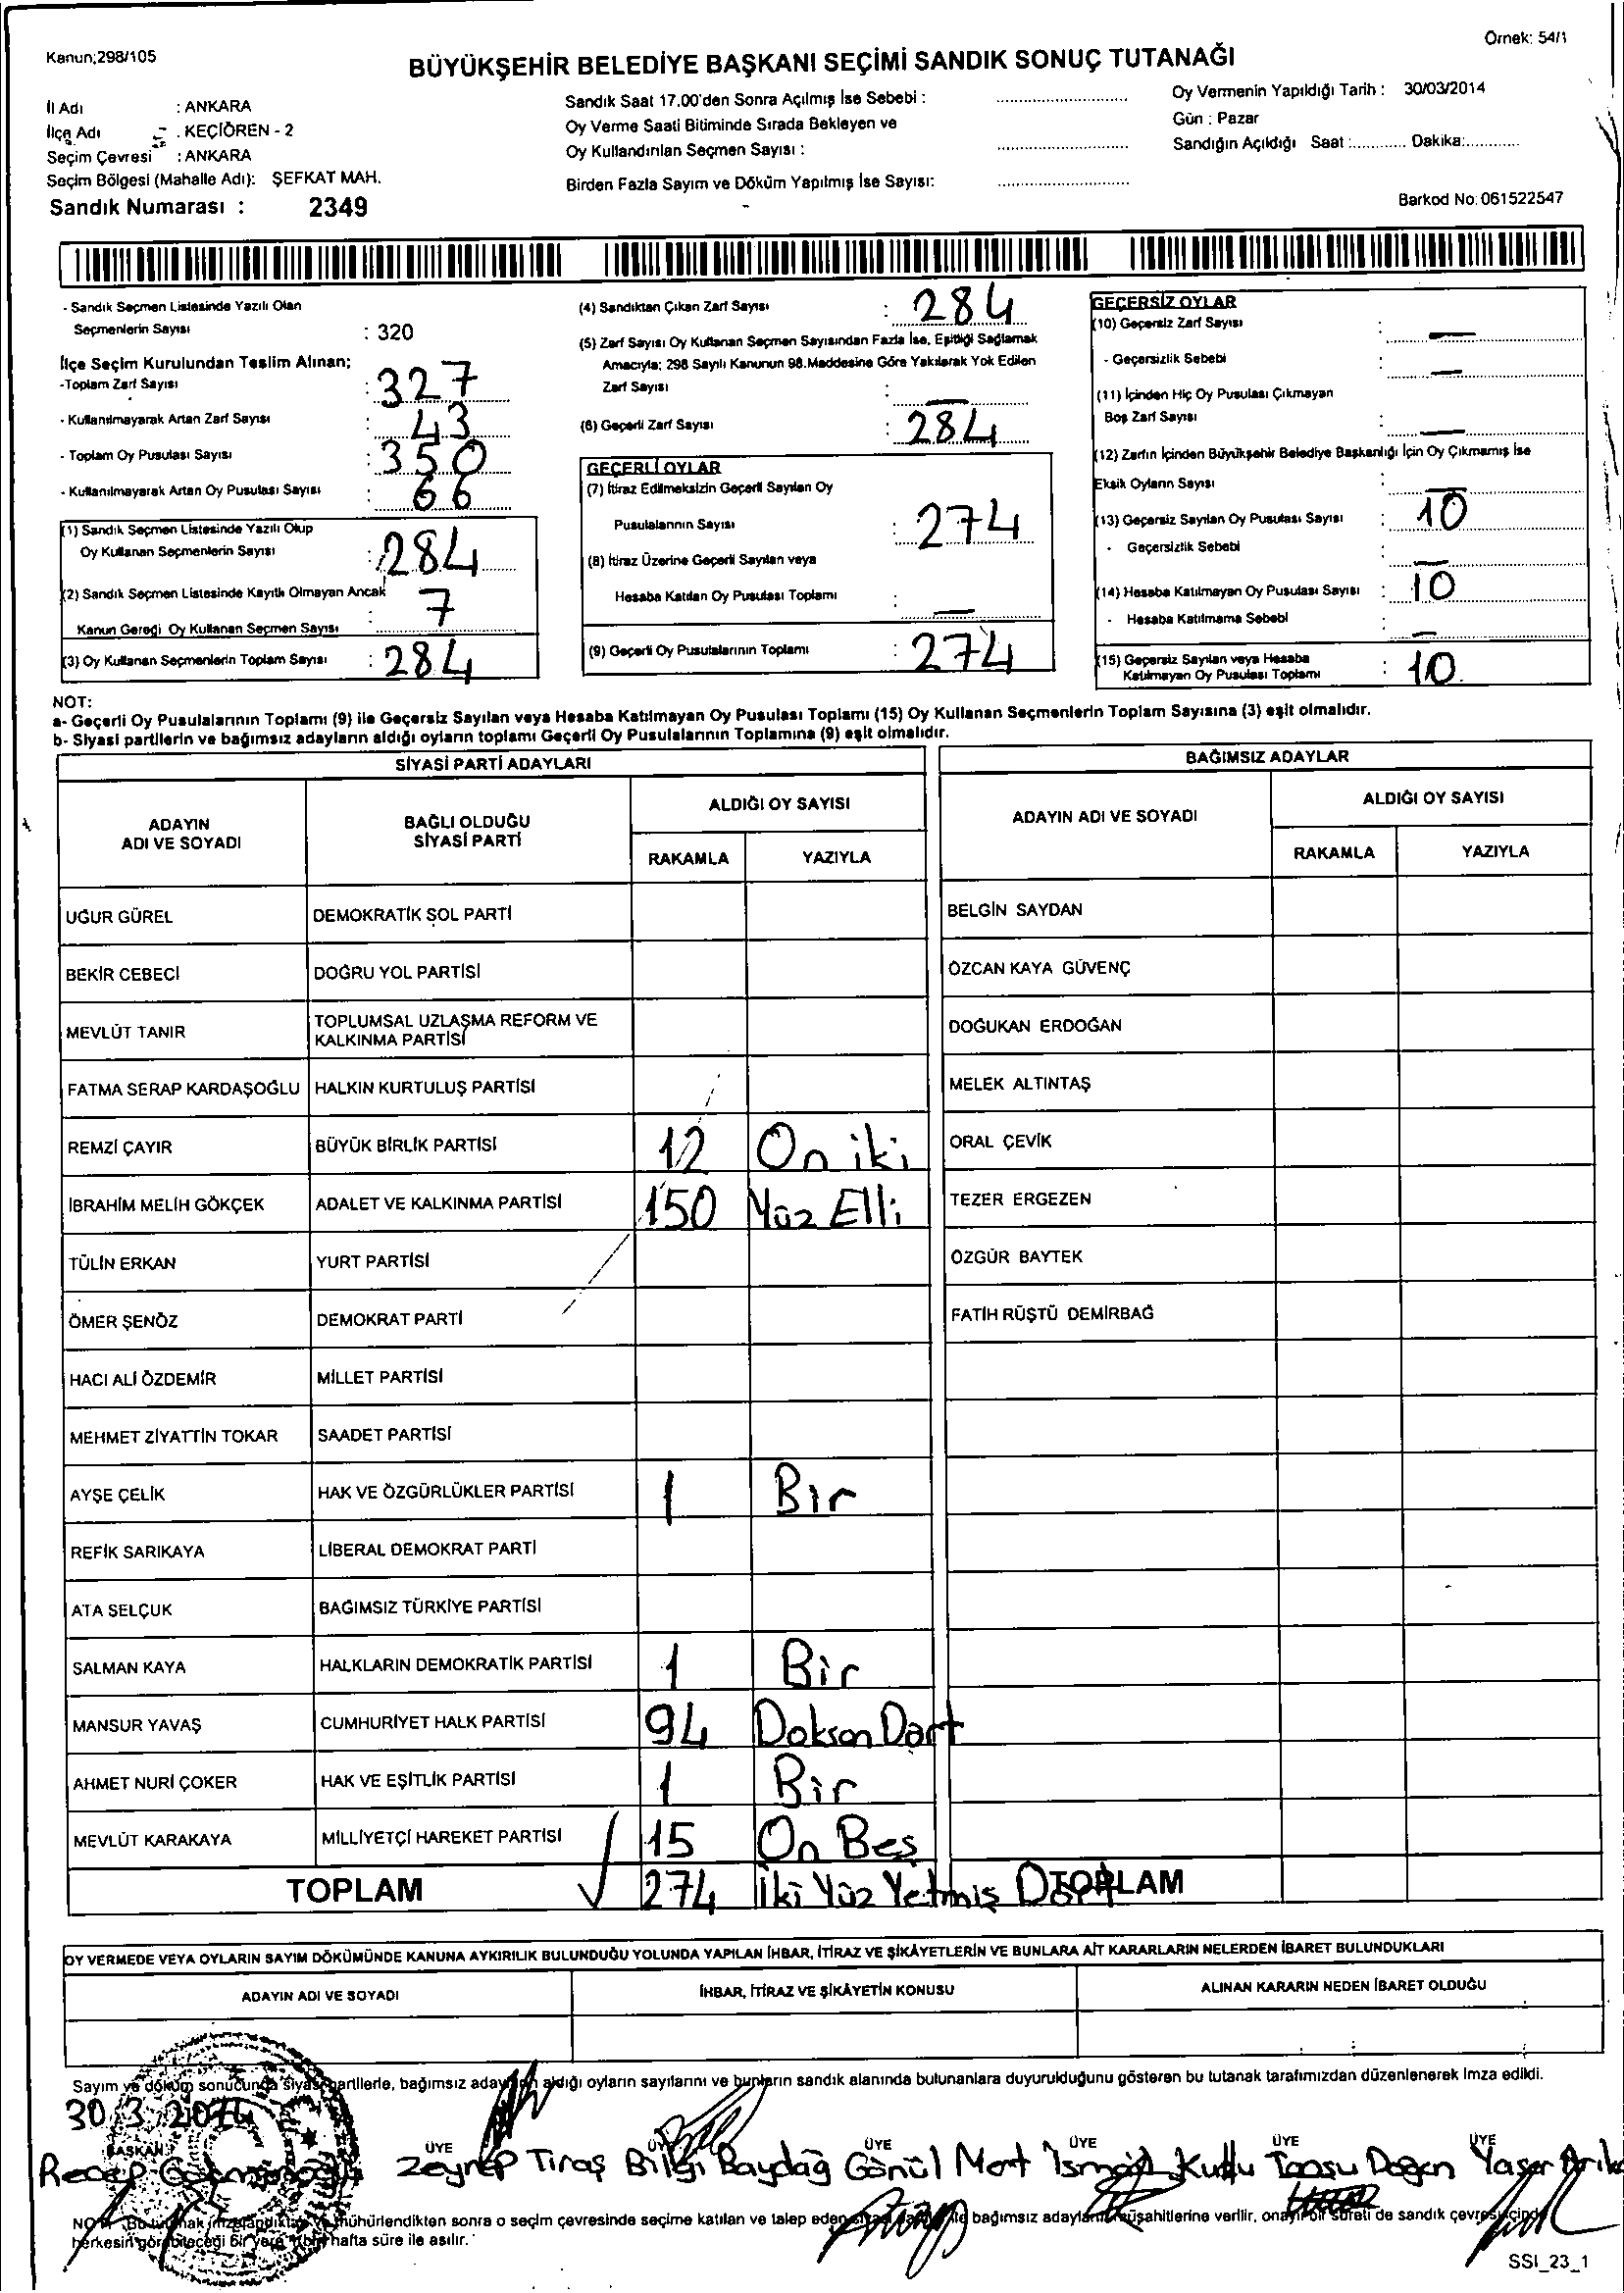 Kanun;298/105
Örnek: 54/1
BÜYÜKŞEHİR BELEDİYE BAŞKANI SEÇİMİ SANDIK SONUÇ TUTANAĞI
İl Adı : ANKARA
İlçe Adı : KEÇİÖREN - 2
Seçim Çevresi : ANKARA
Seçim Bölgesi (Mahalle Adı): ŞEFKAT MAH.
Sandık Numarası : 2349
Sandık Saat 17.00'den Sonra Açılmış İse Sebebi :
Oy Verme Saati Bitiminde Sırada Bekleyen ve
Oy Kullandırılan Seçmen Sayısı :
Birden Fazla Sayım ve Döküm Yapılmış İse Sayısı:
Oy Vermenin Yapıldığı Tarih : 30/03/2014
Gün : Pazar
Sandığın Açıldığı Saat :............ Dakika:............
Barkod No: 061522547
- Sandık Seçmen Listesinde Yazılı Olan
Seçmenlerin Sayısı : 320
İlçe Seçim Kurulundan Teslim Alınan;
-Toplam Zarf Sayısı : 327
- Kullanılmayarak Artan Zarf Sayısı : 43
- Toplam Oy Pusulası Sayısı : 350
- Kullanılmayarak Artan Oy Pusulası Sayısı : 66
(1) Sandık Seçmen Listesinde Yazılı Olup
Oy Kullanan Seçmenlerin Sayısı : 284
(2) Sandık Seçmen Listesinde Kayıtlı Olmayan Ancak
Kanun Gereği Oy Kullanan Seçmen Sayısı : 7
(3) Oy Kullanan Seçmenlerin Toplam Sayısı : 284
(4) Sandıktan Çıkan Zarf Sayısı : 284
(5) Zarf Sayısı Oy Kullanan Seçmen Sayısından Fazla İse, Eşitliği Sağlamak
Amacıyla; 298 Sayılı Kanunun 98.Maddesine Göre Yakılarak Yok Edilen
Zarf Sayısı : —
(6) Geçerli Zarf Sayısı : 284
GEÇERLİ OYLAR
(7) İtiraz Edilmeksizin Geçerli Sayılan Oy
Pusulalarının Sayısı : 274
(8) İtiraz Üzerine Geçerli Sayılan veya
Hesaba Katılan Oy Pusulası Toplamı : —
(9) Geçerli Oy Pusulalarının Toplamı : 274
GEÇERSİZ OYLAR
(10) Geçersiz Zarf Sayısı : —
- Geçersizlik Sebebi : —
(11) İçinden Hiç Oy Pusulası Çıkmayan
Boş Zarf Sayısı : —
(12) Zarfın İçinden Büyükşehir Belediye Başkanlığı İçin Oy Çıkmamış İse
Eksik Oyların Sayısı : —
(13) Geçersiz Sayılan Oy Pusulası Sayısı : 10
- Geçersizlik Sebebi : —
(14) Hesaba Katılmayan Oy Pusulası Sayısı : 10
- Hesaba Katılmama Sebebi : —
(15) Geçersiz Sayılan veya Hesaba
Katılmayan Oy Pusulası Toplamı : 10
NOT:
a- Geçerli Oy Pusulalarının Toplamı (9) ile Geçersiz Sayılan veya Hesaba Katılmayan Oy Pusulası Toplamı (15) Oy Kullanan Seçmenlerin Toplam Sayısına (3) eşit olmalıdır.
b- Siyasi partilerin ve bağımsız adayların aldığı oyların toplamı Geçerli Oy Pusulalarının Toplamına (9) eşit olmalıdır.
SİYASİ PARTİ ADAYLARI
ADAYIN ADI VE SOYADI
BAĞLI OLDUĞU SİYASİ PARTİ
ALDIĞI OY SAYISI
RAKAMLA YAZIYLA
UĞUR GÜREL DEMOKRATİK SOL PARTİ
BEKİR CEBECİ DOĞRU YOL PARTİSİ
MEVLÜT TANIR TOPLUMSAL UZLAŞMA REFORM VE KALKINMA PARTİSİ
FATMA SERAP KARDAŞOĞLU HALKIN KURTULUŞ PARTİSİ
REMZİ ÇAYIR BÜYÜK BİRLİK PARTİSİ 12 On iki
İBRAHİM MELİH GÖKÇEK ADALET VE KALKINMA PARTİSİ 150 Yüz Elli
TÜLİN ERKAN YURT PARTİSİ
ÖMER ŞENÖZ DEMOKRAT PARTİ
HACI ALİ ÖZDEMİR MİLLET PARTİSİ
MEHMET ZİYATTİN TOKAR SAADET PARTİSİ
AYŞE ÇELİK HAK VE ÖZGÜRLÜKLER PARTİSİ 1 Bir
REFİK SARIKAYA LİBERAL DEMOKRAT PARTİ
ATA SELÇUK BAĞIMSIZ TÜRKİYE PARTİSİ
SALMAN KAYA HALKLARIN DEMOKRATİK PARTİSİ 1 Bir
MANSUR YAVAŞ CUMHURİYET HALK PARTİSİ 94 Doksan Dört
AHMET NURİ ÇOKER HAK VE EŞİTLİK PARTİSİ 1 Bir
MEVLÜT KARAKAYA MİLLİYETÇİ HAREKET PARTİSİ 15 On Beş
TOPLAM 274 İki Yüz Yetmiş Dört
BAĞIMSIZ ADAYLAR
ADAYIN ADI VE SOYADI
ALDIĞI OY SAYISI
RAKAMLA YAZIYLA
BELGİN SAYDAN
ÖZCAN KAYA GÜVENÇ
DOĞUKAN ERDOĞAN
MELEK ALTINTAŞ
ORAL ÇEVİK
TEZER ERGEZEN
ÖZGÜR BAYTEK
FATİH RÜŞTÜ DEMİRBAĞ
TOPLAM
OY VERMEDE VEYA OYLARIN SAYIM DÖKÜMÜNDE KANUNA AYKIRILIK BULUNDUĞU YOLUNDA YAPILAN İHBAR, İTİRAZ VE ŞİKÂYETLERİN VE BUNLARA AİT KARARLARIN NELERDEN İBARET BULUNDUKLARI
ADAYIN ADI VE SOYADI
İHBAR, İTİRAZ VE ŞİKÂYETİN KONUSU
ALINAN KARARIN NEDEN İBARET OLDUĞU
Sayım ve döküm sonucunda siyasi partilerle, bağımsız adayların aldığı oyların sayılarını ve bunların sandık alanında bulunanlara duyurulduğunu gösteren bu tutanak tarafımızdan düzenlenerek imza edildi.
30 3 2014
BAŞKAN ÜYE ÜYE ÜYE ÜYE ÜYE ÜYE
Recep Zeynep Tiraş Bilgi Baydağ Gönül Mert İsmail Kutlu Tansu Dogan Yaşar
NOT: Bu tutanak imzalandıktan ve mühürlendikten sonra o seçim çevresinde seçime katılan ve talep eden siyasi parti ile bağımsız adayların müşahitlerine verilir, onaylı bir sureti de sandık çevresi içinde
herkesin görebileceği bir yere bir hafta süre ile asılır.
SSI_23_1